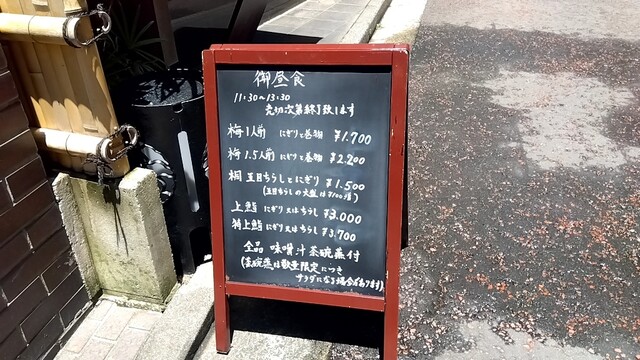 御昼食
11:30〜13:30
売切次第終了致します
梅1人前 にぎりと巻物 ¥1.700
梅1.5人前 にぎりと巻物 ¥2.200
桐 五目ちらしとにぎり ¥1.500
(五目ちらしの大盛は¥100増)
上鮨 にぎり又はちらし ¥3.000
特上鮨 にぎり又はちらし ¥3.700
全品 味噌汁茶碗蒸付
(茶碗蒸は数量限定につき
サラダになる場合があります)